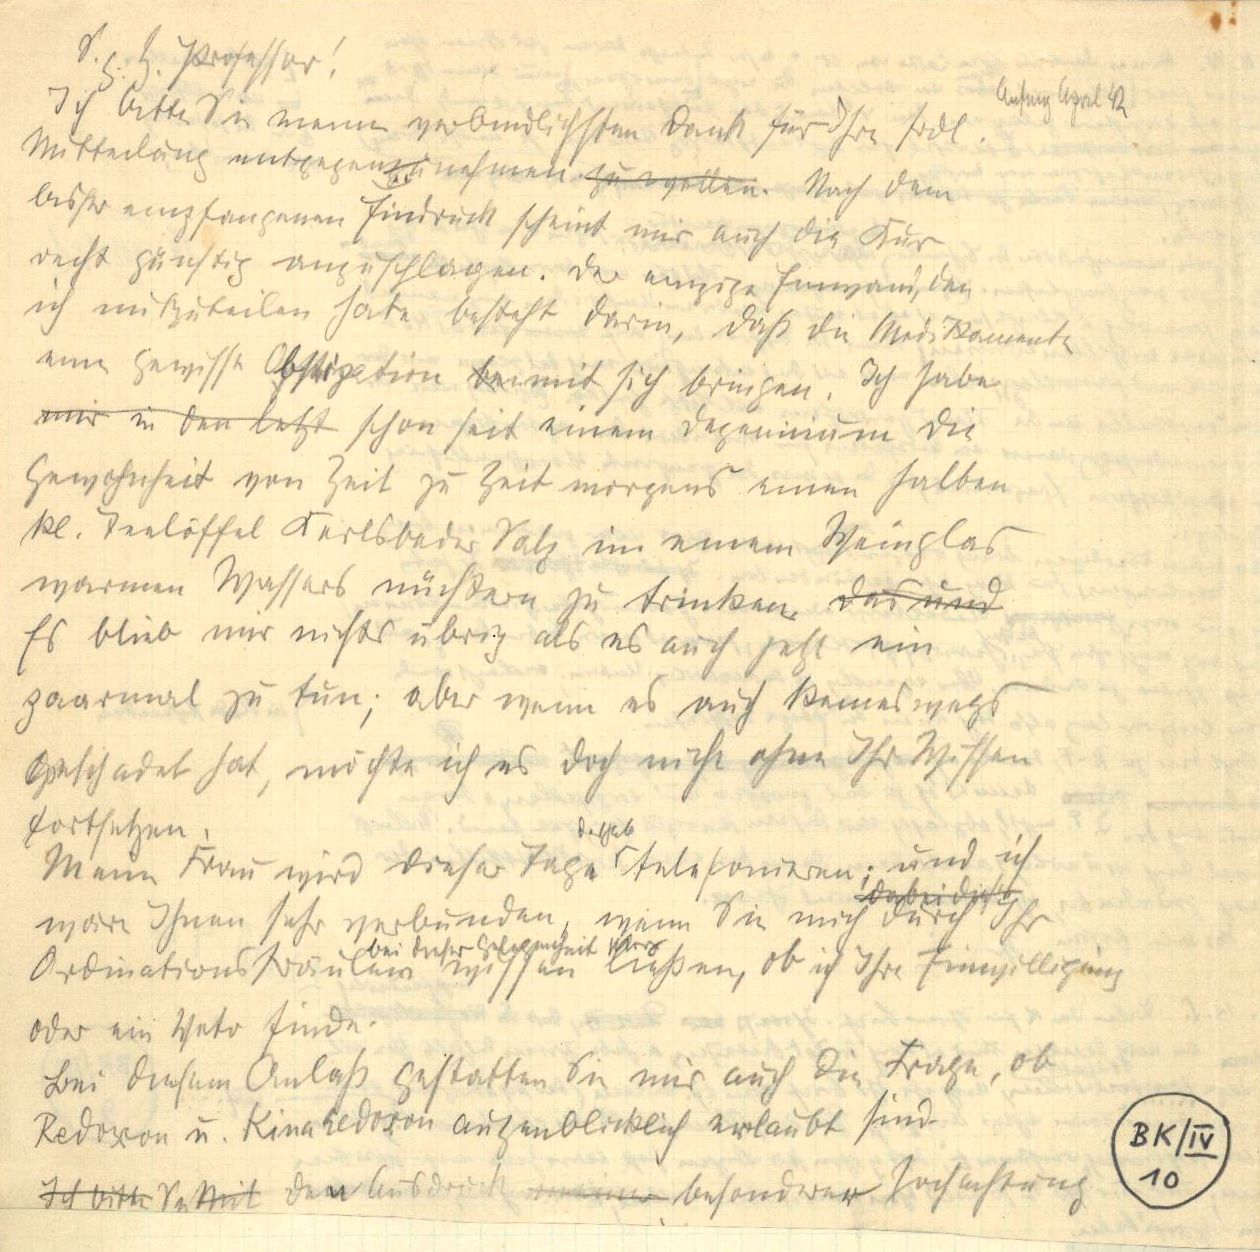 S. g. H. Professor!
Anfang April 42
Ich bitte Sie meinen verbindlichsten Dank für Ihre frdl.
Mitteilung entgegenzunehmen zu wollen. Nach dem
bisher empfangenen Eindruck scheint mir auch die Kur
recht günstig anzuschlagen. Der einzige Einwand, den
ich mitzuteilen habe besteht darin, daß die Medikamente
eine gewisse Obstipation mit sich bringen. Ich habe
mir in den letzt schon seit einem Dezennium die
Gewohnheit von Zeit zu Zeit morgens einen halben
kl. Teelöffel Karlsbader Salz in einem Weinglas
warmen Wassers nüchtern zu trinken. das und
Es blieb mir nichts übrig als es auch jetzt ein
paarmal zu tun; aber wenn es auch keineswegs
geschadet hat, möchte ich es doch nicht ohne Ihr Wissen
fortsetzen.
deshalb
Meine Frau wird dieser Tage telefonieren; und ich
wäre Ihnen sehr verbunden, wenn Sie mich durch Ihr
bei dieser Gelegenheit
Ordinationsfräulein wissen ließen, ob ich Ihre Einwilligung
oder ein Veto finde.
Bei diesem Anlaß gestatten Sie mir auch die Frage, ob
Redoxon u. Kinaredoxon augenblicklich erlaubt sind
Ich bitte Sie Mit den Ausdruck meiner besonderer Hochachtung
BK/IV
10